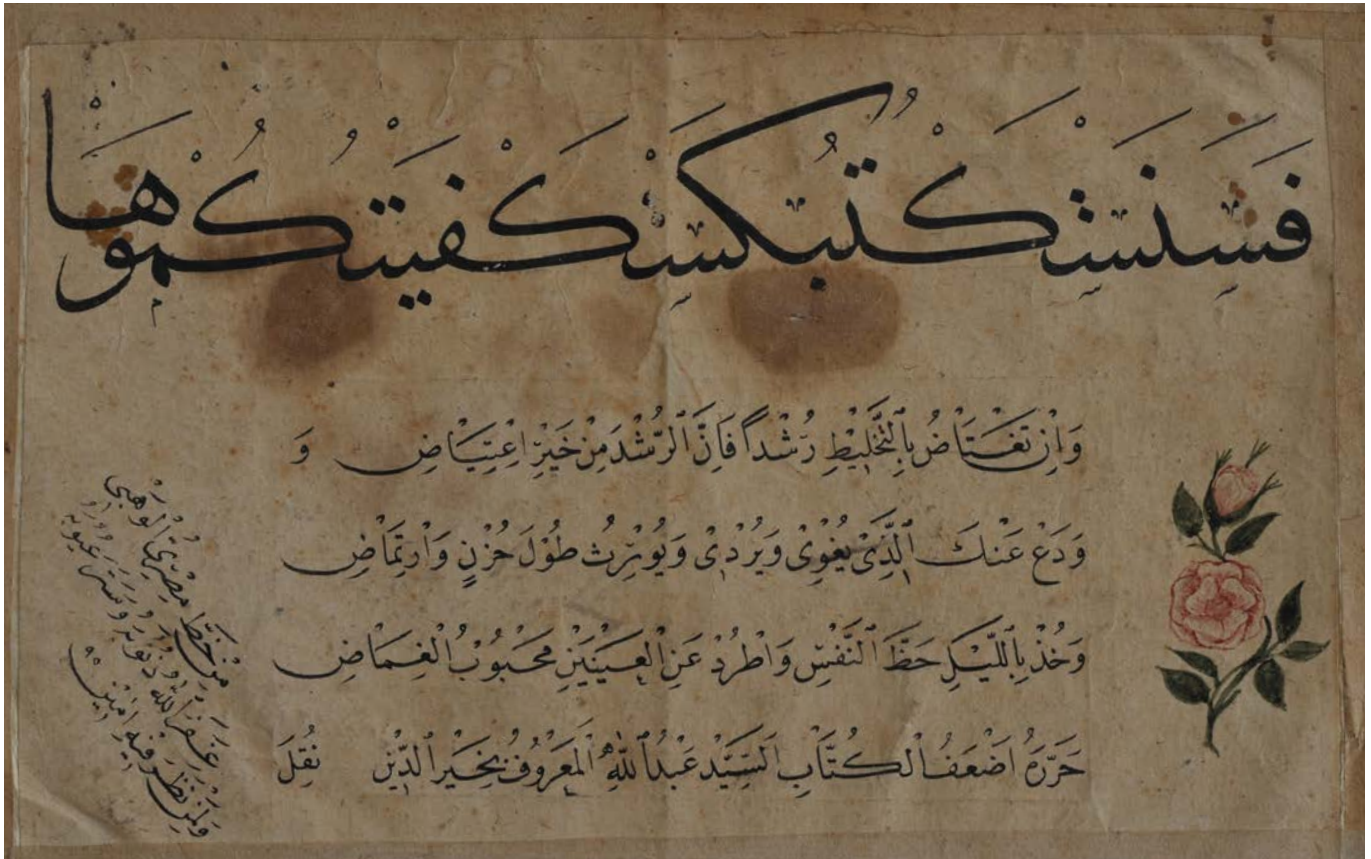 فَسَنَسَتَكْتُبُكَسَتَكْفِيَتَكُمُوهَا
وَاِنْ تَعْتَاضُ بِالتَّخْلِيْطِ رُشْدًا فَاِنَّ الرُّشْدَ مِنْ خَيْرِ اعْتِيَاضِ و
وَدَعْ عَنْكَ الَّذِىْ يُغْوِىْ وَيُرْدِىْ وَيُوْرِثُ طُوْلَ حُزْنٍ وَارْتِمَاضِ
وَخُذْ بِاللَّيْلِ حَظَّ النَّفْسِ وَاطْرُدْ عَنِ الْعَيْنَيْنِ مَحْبُوْبَ الْغِمَاضِ
حَرَّرَهُ اَضْعَفُ الْكُتَّابِ السَّيِّدْ عَبْدُ اللّٰهِ الْمَعْرُوْفُ بِخَيْرِ الدِّيْنِ نُقِلَ
مِنْ خَطِّ مِصْرِىِّ الْوَهْبِى
غَفَرَ اللّٰهُ ذُنُوْبَهُ وَسَتَرَ عُيُوْبَهُ
وَلِمَنْ نَظَرَ فِيْهِ اٰمِيْنَ